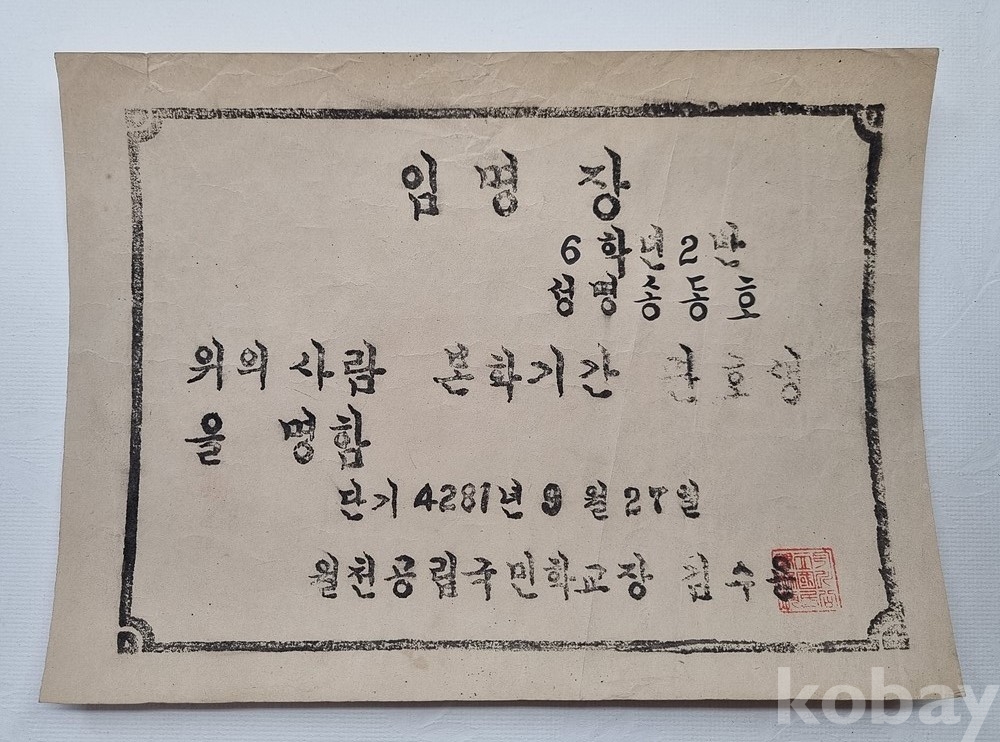 임명장
6학년2반
성명송동호
위의 사람 본학기간
을 명함
단기 4281년 9월 27일
월천공립국민학교장 김수
kobay